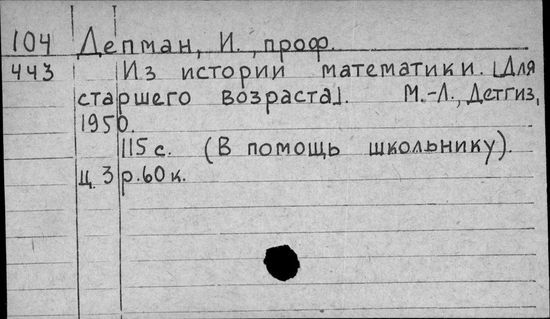 104 Депман, И., проф.
443 Из истории математики. [Для
старшего возраста]. М.-Л., Детгиз,
1950.
115 с. (В помощь школьнику).
Ц. 3 р. 60 к.